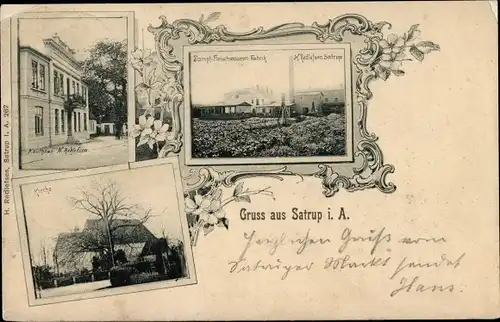 H. Redlefsen, Satrup i. A. 267
Kaufhaus H. Redlefsen
Dampf-Fleischwaaren-Fabrik H. Redlefsen, Satrup
Kirche
Gruss aus Satrup i. A.
Herzlichen Gruß vom
Satruper Markt sendet
Hans.